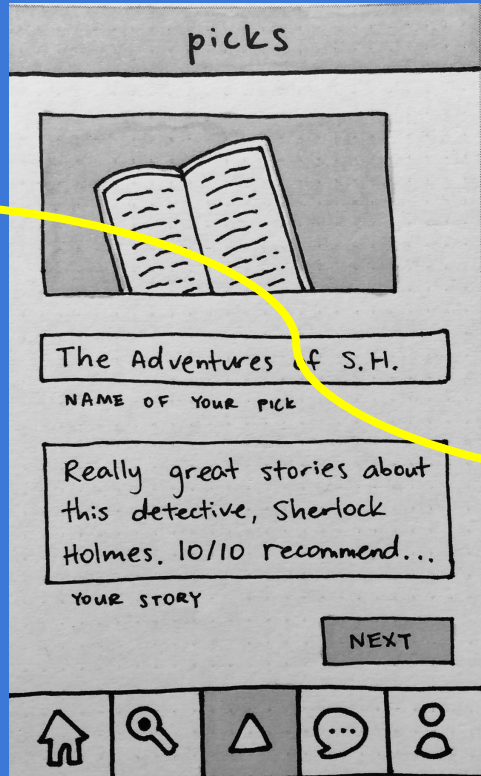 picks
The Adventures of S.H.
NAME OF YOUR PICK
Really great stories about
this detective, Sherlock
Holmes. 10/10 recommend...
YOUR STORY
NEXT